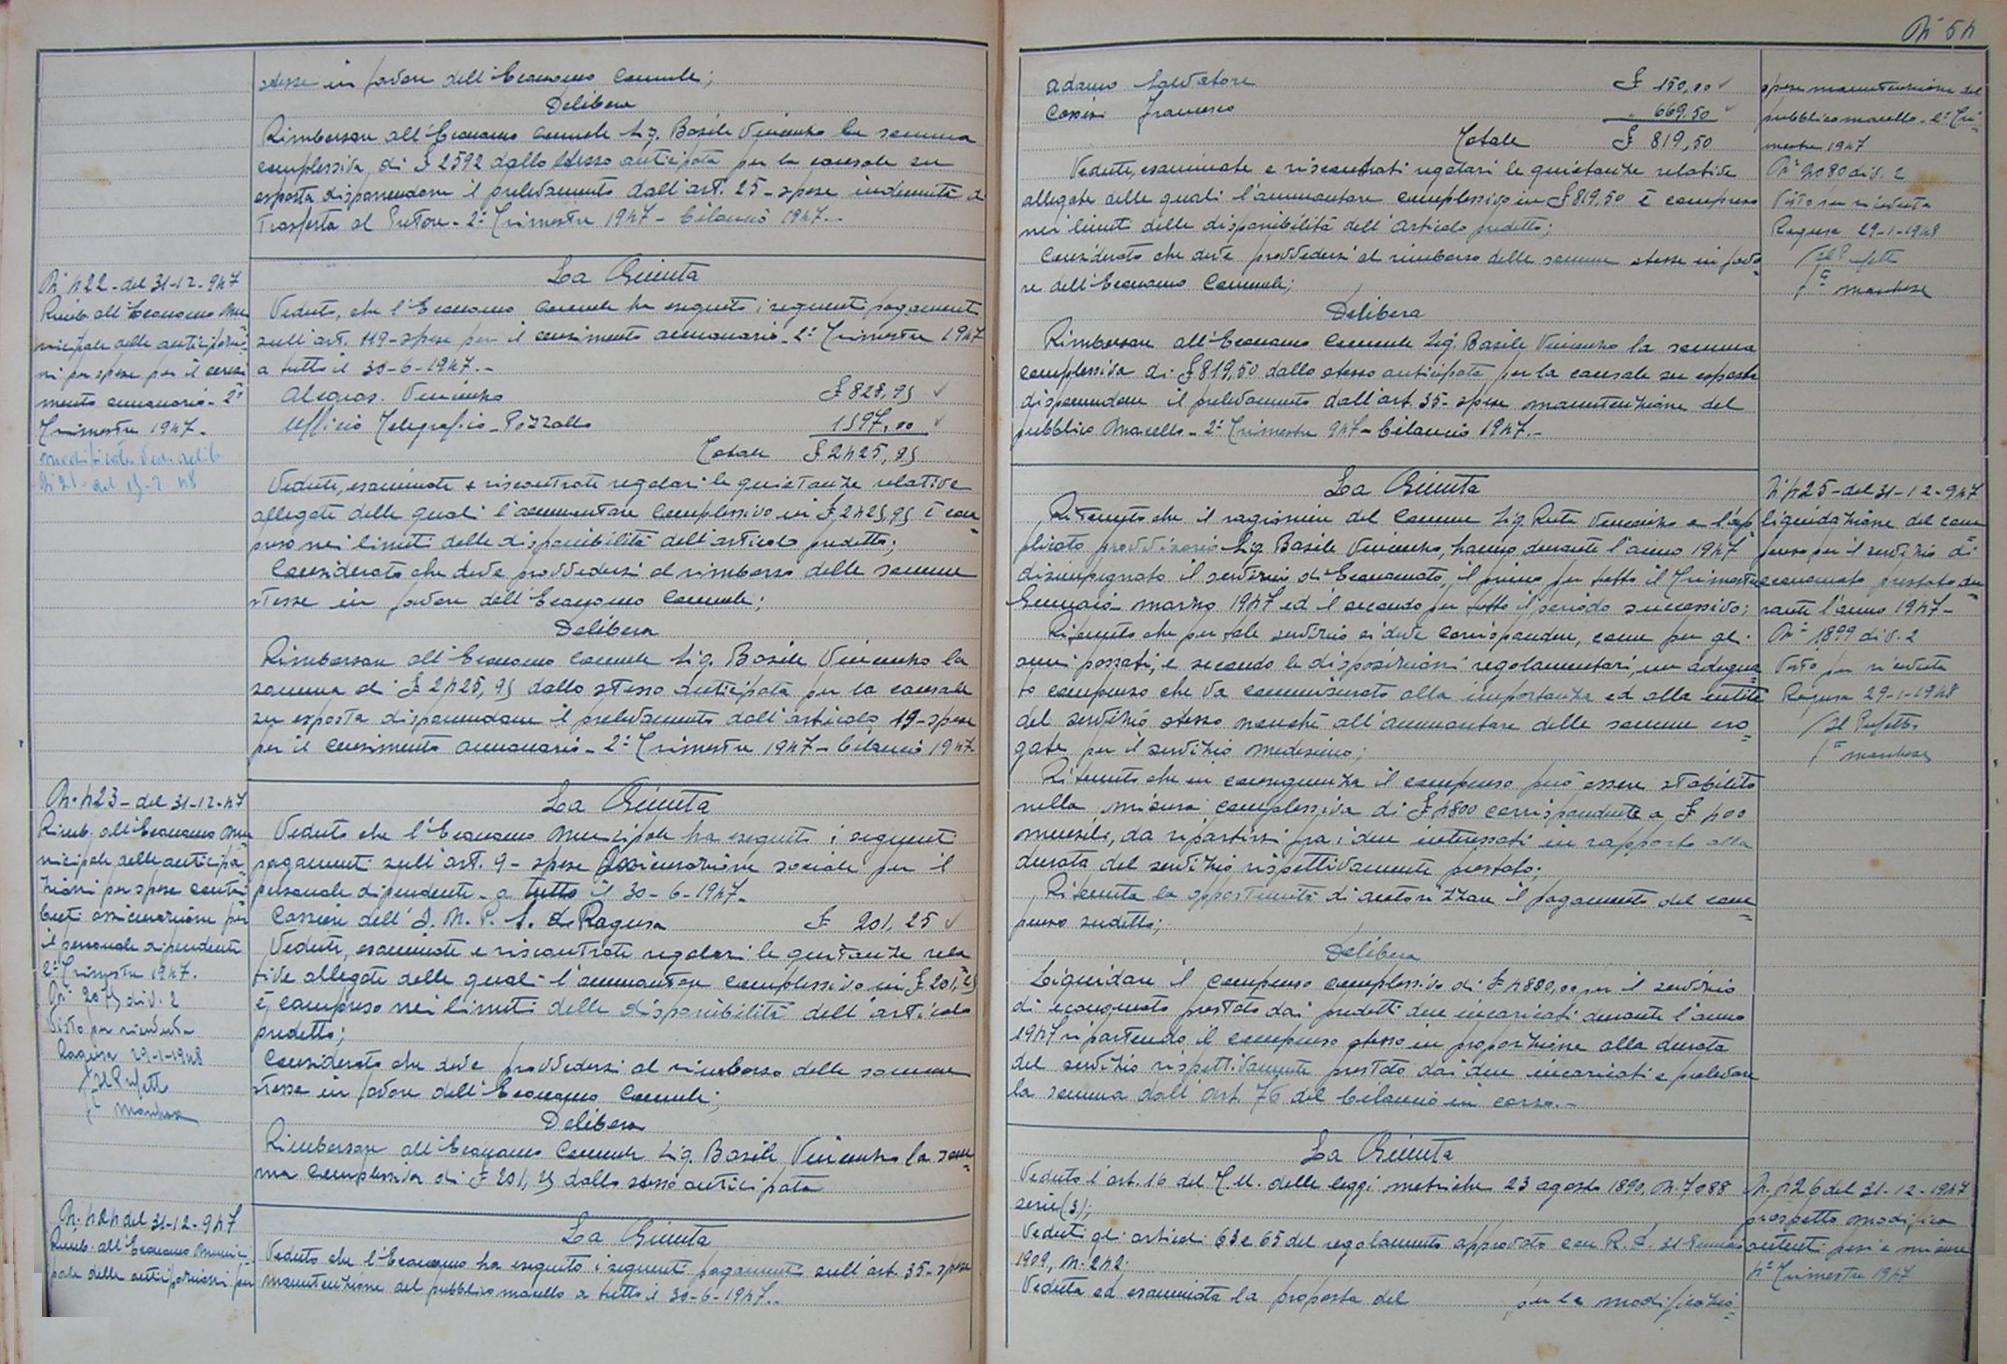 stesse in favore dell'Economo Comunale;
Delibera
Rimborsare all'Economo Comunale Sig. Basile Vincenzo la somma
complessiva di £ 2592 dallo stesso anticipata per la causale su
esposta disponendone il prelevamento dall'art. 25 - spese indennità di
trasferta al Pretore - 2° Trimestre 1947 - bilancio 1947.-
N° 422 - del 31-12-947
Rimb. all'Economo Mu=
nicipale delle anticipazio=
ni per spese per il censi
mento annonario - 2°
Trimestre 1947.-
modificata Ved. delib.
N° 21 del 15-2-48
La Giunta
Veduto, che l'Economo Comunale ha eseguito i seguenti pagamenti
sull'art. 119 - spese per il censimento annonario - 2° Trimestre 1947
a tutto il 30-6-1947.-
Vincenzo £ 828,95
Ufficio Telegrafico - Pozzallo 1597,00
Totale £ 2425,95
Vedute, esaminate e riscontrate regolari le quietanze relative
allegate delle quali l'ammontare complessivo in £ 2425,95 è com=
preso nei limiti delle disponibilità dell'articolo predetto;
Considerato che deve provvedersi al rimborso delle somme
stesse in favore dell'Economo Comunale;
Delibera
Rimborsare all'Economo Comunale Sig. Basile Vincenzo la
somma di £ 2425,95 dallo stesso anticipata per la causale
su esposta disponendone il prelevamento dall'articolo 19 - spese
per il censimento annonario - 2° Trimestre 1947 - bilancio 1947.-
N. 423 - del 31-12-47
Rimb. all'Economo Mu
nicipale delle anticipa=
zioni per spese contri
buti assicurazione per
il personale dipendente
2° Trimestre 1947.
N° 2075 div. 2
Visto per ricevuta
Ragusa 29-1-1948
Il Prefetto
La Giunta
Veduto che l'Economo Municipale ha eseguito i seguenti
pagamenti sull'art. 9 - spese Assicurazione sociale per il
personale dipendente - a tutto il 30-6-1947.-
Cassiere dell'I.N.P.S. di Ragusa £ 201,25
Vedute, esaminate e riscontrate regolari le quietanze rela
tive allegate delle quali l'ammontare complessivo in £ 201,25
è compreso nei limiti delle disponibilità dell'articolo
predetto;
Considerato che deve provvedersi al rimborso delle somme
stesse in favore dell'Economo Comunale;
Delibera
Rimborsare all'Economo Comunale Sig. Basile Vincenzo la som=
ma complessiva di £ 201,25 dallo stesso anticipata
N. 424 del 31-12-947
Rimb. all'Economo Munici
pale delle anticipazioni per
La Giunta
Veduto che l'Economo ha eseguito i seguenti pagamenti sull'art. 35 - spese
manutenzione del pubblico macello a tutto il 30-6-1947.-
N° 54
Adamo Salvatore £ 150,00
Francesco 669,50
Totale £ 819,50
Vedute, esaminate e riscontrati regolari le quietanze relative
allegate delle quali l'ammontare complessivo in £ 819,50 è compreso
nei limiti delle disponibilità dell'articolo predetto;
Considerato che deve provvedersi al rimborso delle somme stesse in favo=
re dell'Economo Comunale;
Delibera
Rimborsare all'Economo Comunale Sig. Basile Vincenzo la somma
complessiva di £ 819,50 dallo stesso anticipata per la causale su esposta
disponendone il prelevamento dall'art. 35 - spese manutenzione del
pubblico Macello - 2° Trimestre 947 - bilancio 1947.-
spese manutenzione del
pubblico macello - 2° Tri=
mestre 1947
N° 2080 div. 2
Visto per ricevuta
Ragusa 29-1-1948
Il Prefetto
La Giunta
Ritenuto che il ragioniere del Comune Sig. Ruta Vincenzo e l'ap=
plicato provvisorio Sig. Basile Vincenzo, hanno, durante l'anno 1947
disimpegnato il servizio di Economato, il primo per tutto il Trimestre
Gennaio marzo 1947 ed il secondo per tutto il periodo successivo;
Ritenuto che per tale servizio si deve corrispondere, come per gli
anni passati, e secondo le disposizioni regolamentari, un adegua=
to compenso che va commisurato alla importanza ed alla entità
del servizio stesso nonchè all'ammontare delle somme ero=
gate per il servizio medesimo;
Ritenuto che in conseguenza il compenso può essere stabilito
nella misura complessiva di £ 4800 corrispondente a £ 400
mensili, da ripartirsi fra i due interessati in rapporto alla
durata del servizio rispettivamente prestato;
Ritenuta la opportunità di autorizzare il pagamento del com=
penso sudetto;
Delibera
Liquidare il compenso complessivo di £ 4800,00 per il servizio
di economato prestato dai predetti due incaricati durante l'anno
1947 ripartendo il compenso stesso in proporzione alla durata
del servizio rispettivamente prestato dai due incaricati e prelevare
la somma dall'art. 76 del bilancio in corso.-
N° 425 - del 31-12-947
liquidazione del com
penso per il servizio di
economato prestato du=
rante l'anno 1947-
N° 1899 div. 2
Visto per ricevuta
Ragusa 29-1-1948
Il Prefetto
La Giunta
Veduto l'art. 16 del T.U. delle leggi metriche 23 agosto 1890, N. 7088
serie (3);
Veduti gli articoli 63 e 65 del regolamento approvato con R.D. 31 Gennaio
1909, N. 242.
Veduta ed esaminata la proposta del per le modificazio=
N. 426 del 31-12-1947
prospetto modifica
utenti pesi e misure
4° Trimestre 1947